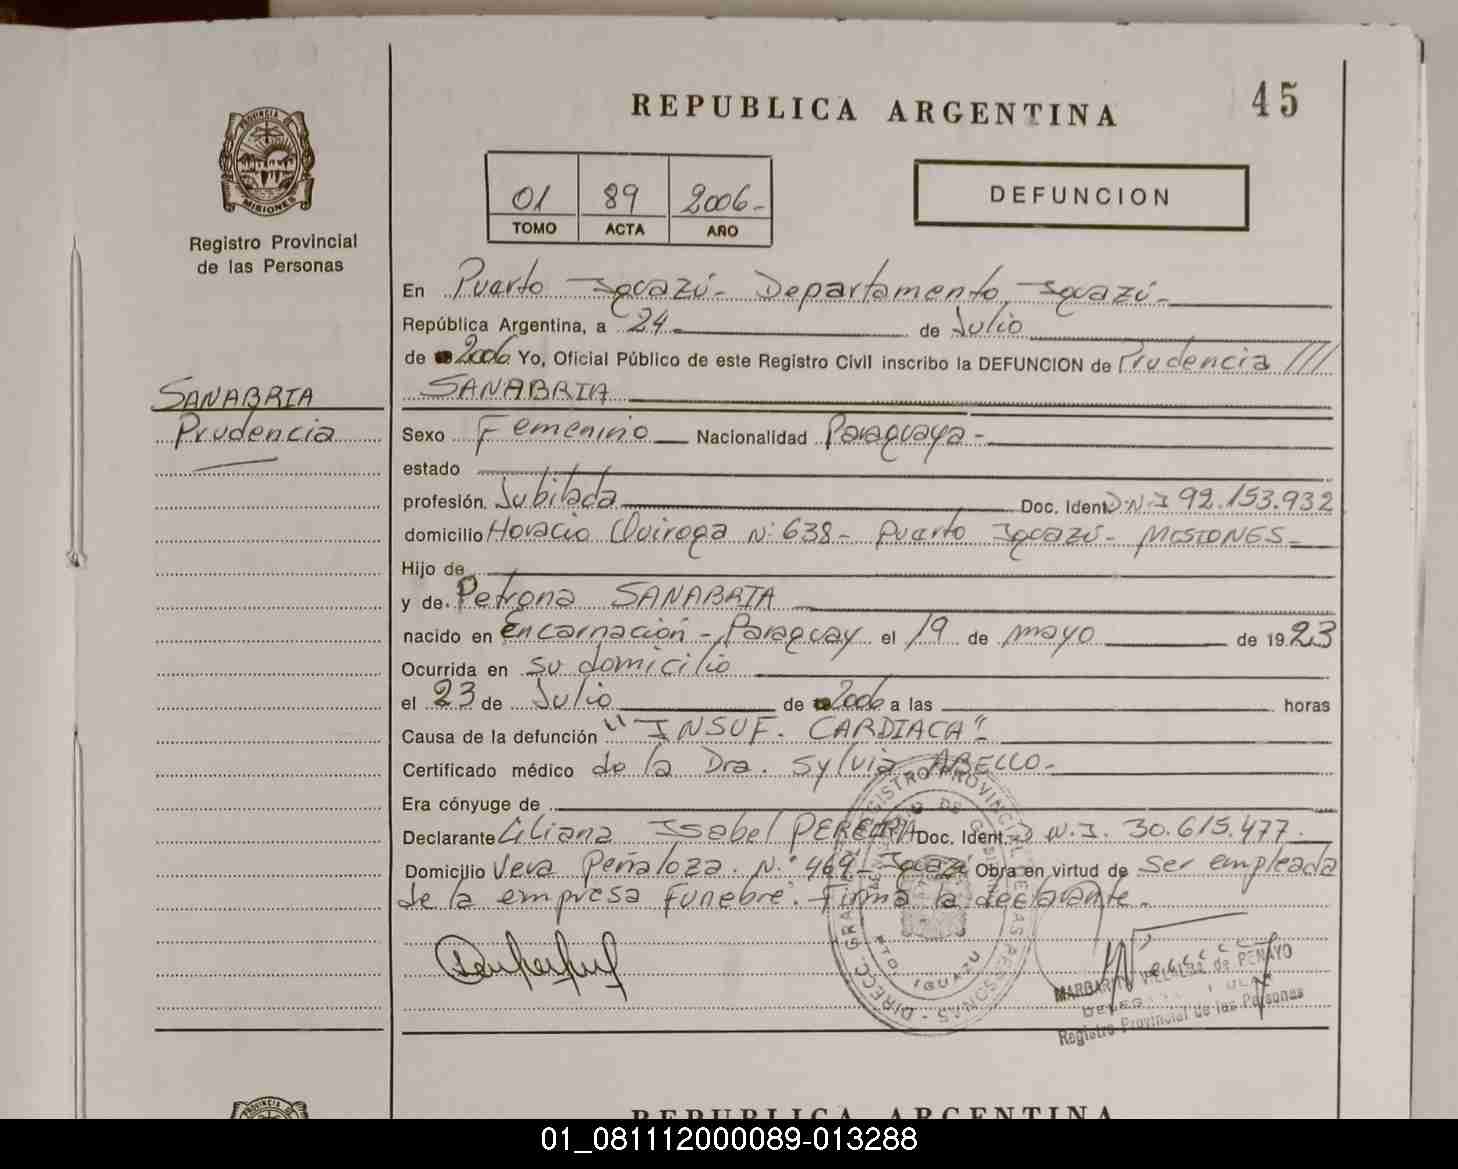 REPUBLICA ARGENTINA
45
PROVINCIA DE
MISIONES
Registro Provincial
de las Personas
01 89 2006-
TOMO ACTA AÑO
DEFUNCION
En Puerto Iguazú - Departamento Iguazú -
República Argentina, a 24 de Julio
de 2006 Yo, Oficial Público de este Registro Civil inscribo la DEFUNCION de Prudencia ///
SANABRIA
SANABRIA
Prudencia
Sexo Femenino Nacionalidad Paraguaya -
estado
profesión. Jubilada Doc. Ident. D.N.I 92.153.932
domicilio Horacio Quiroga Nº 638 - Puerto Iguazú - MISIONES -
Hijo de
y de. Petrona SANABRIA
nacido en Encarnación - Paraguay el 19 de mayo de 1923
Ocurrida en su domicilio
el 23 de Julio de 2006 a las horas
Causa de la defunción "INSUF. CARDIACA" -
Certificado médico de la Dra. Sylvia ABELLO -
Era cónyuge de
Declarante Liliana Isabel PEREIRA Doc. Ident. D.N.I. 30.615.477.
Domicilio Veva Peñaloza. N.º 469 - Iguazú Obra en virtud de Ser empleada
de la empresa Funebre. Firma la declarante.
DIRECC. GRAL. REGISTRO PROVINCIAL DE LAS PERSONAS
PTO. IGUAZU
VILLALBA de PENAYO
Registro Provincial de las Personas
REPUBLICA ARGENTINA
01_081112000089-013288